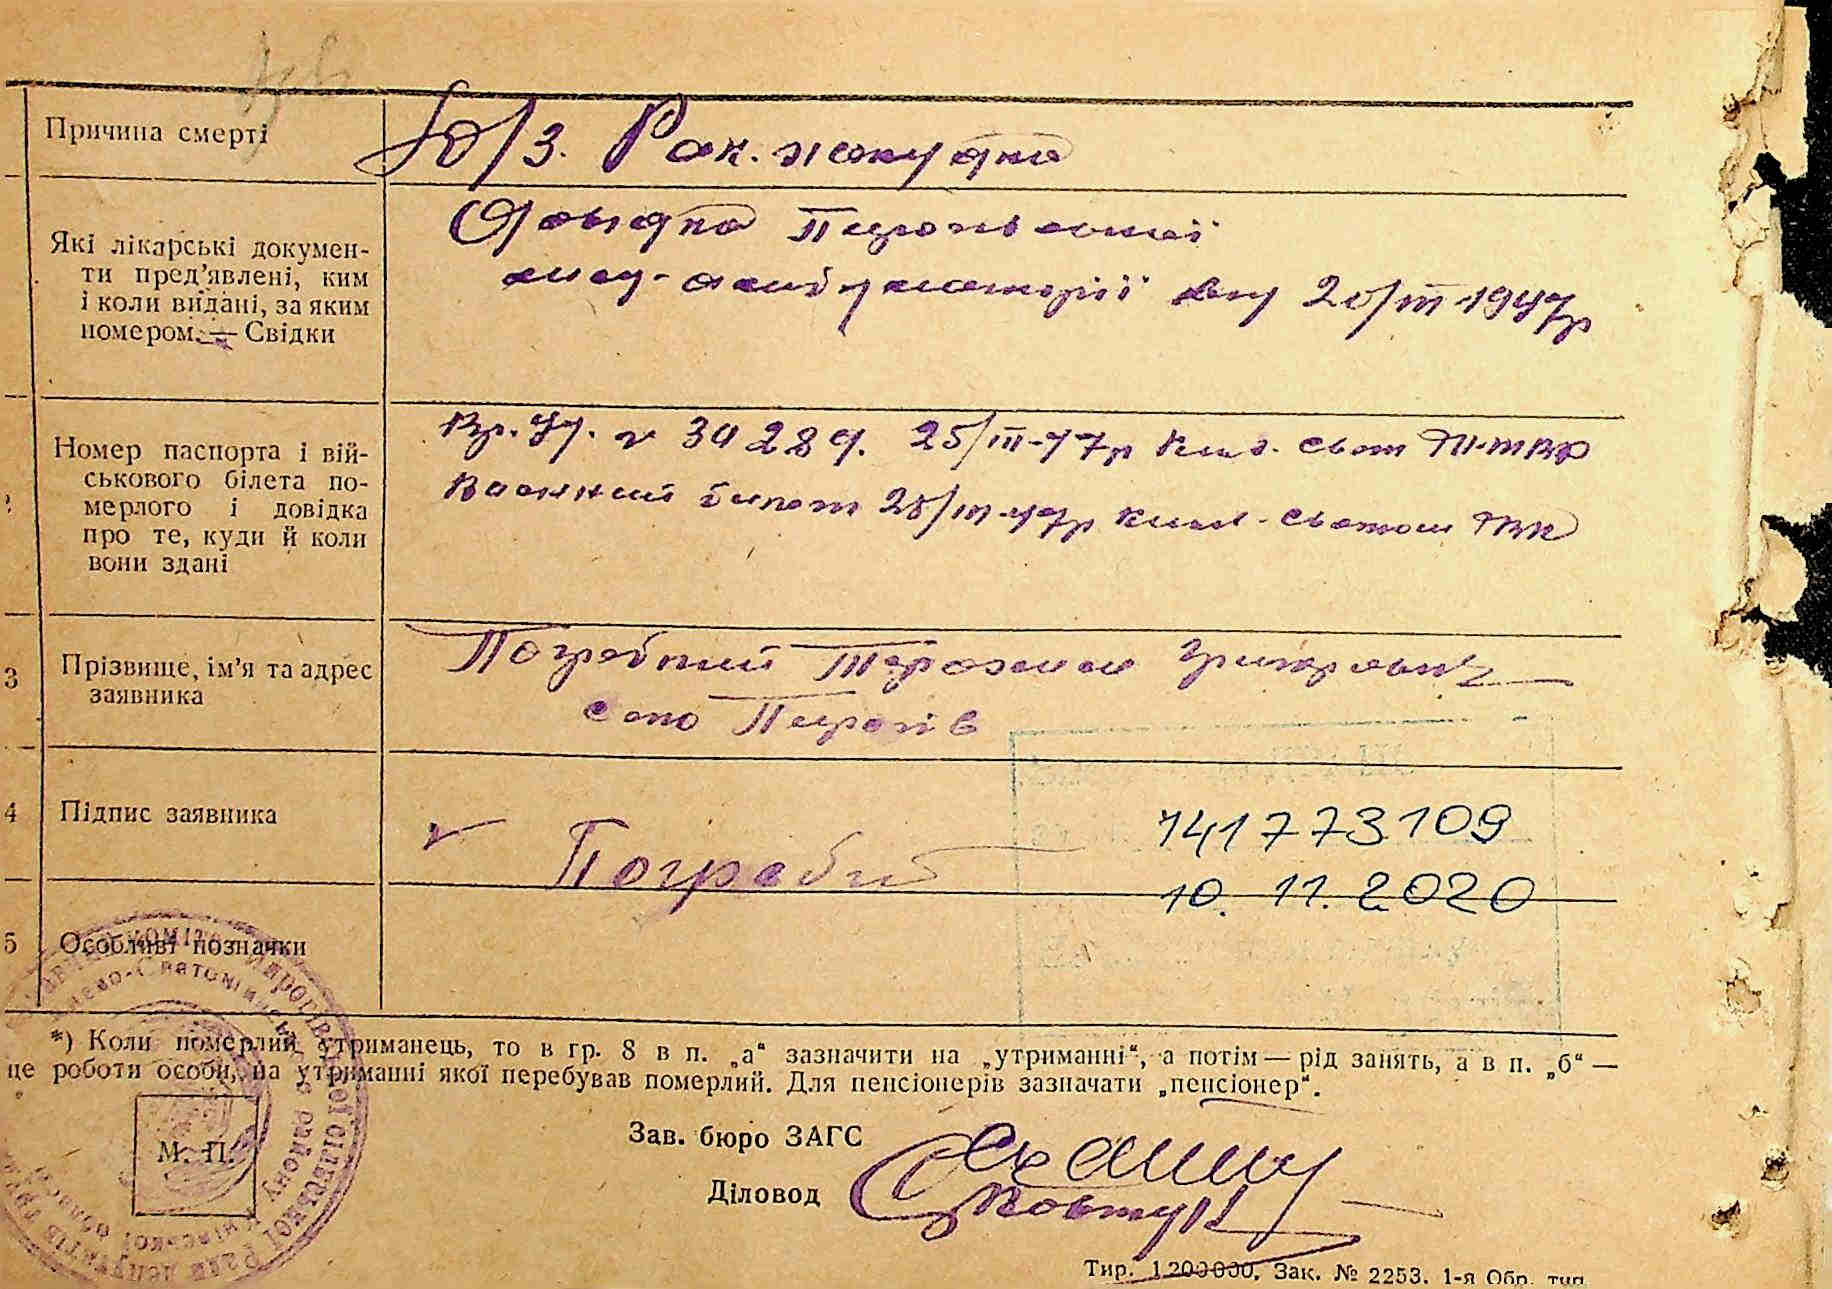 Причина смерті
б/з. Рак. желудка
Які лікарські докумен-
ти пред'явлені, ким
і коли видані, за яким
номером. — Свідки
Довідка Пирогівської
амбулаторії від 20/III 1947р
Номер паспорта і вій-
ськового білета по-
мерлого і довідка
про те, куди й коли
вони здані
Вр. уд. 25/III-47р Киє. Свят
Воєнний билет 25/III-47р Києв-Святош РВК
3
Прізвище, ім'я та адрес
заявника
Погребний Герасим Григорович
село Пирогів
4
Підпис заявника
Погребний
141773109
10. 11. 2020
5
Особливі позначки
*) Коли померлий утриманець, то в гр. 8 в п. „а“ зазначити на „утриманні“, а потім — рід занять, а в п. „б“ —
це роботи особи, на утриманні якої перебував померлий. Для пенсіонерів зазначати „пенсіонер“.
М. П.
Зав. бюро ЗАГС
Діловод
Ковтун
Тир. 1200000. Зак. № 2253. 1-я Обр. тип